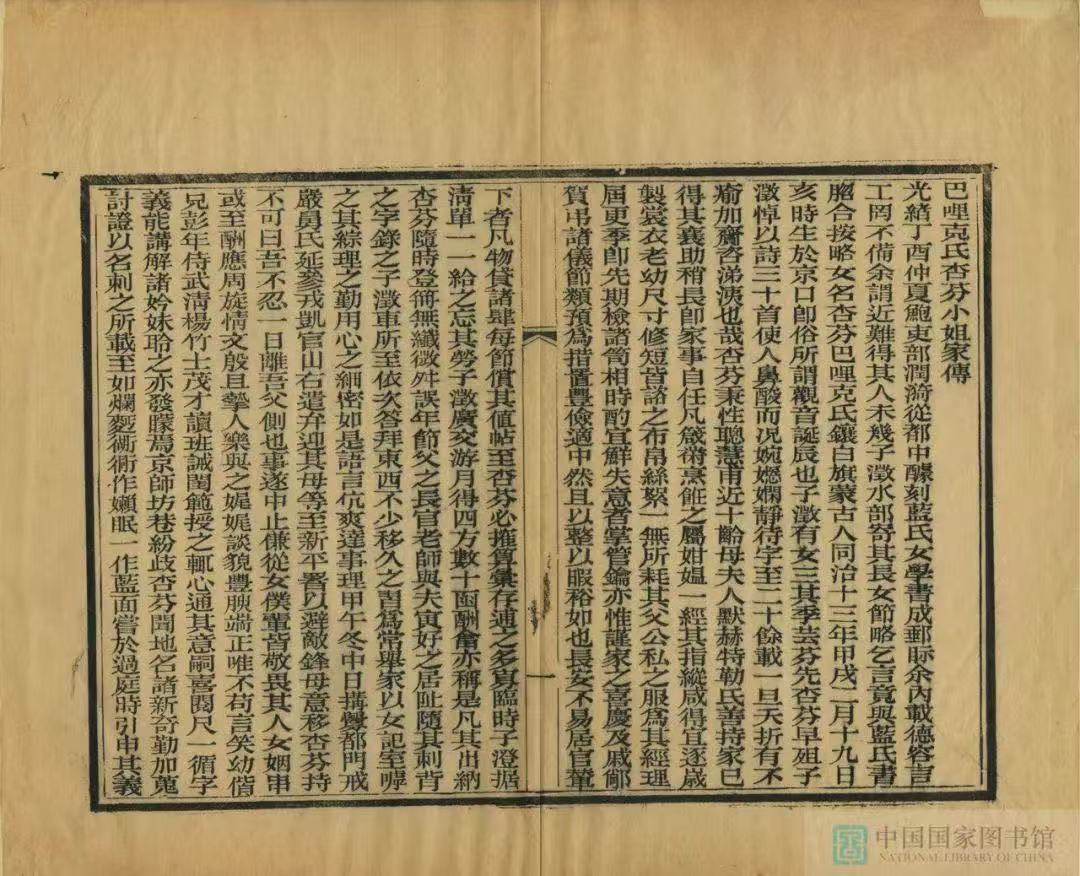 巴哩克氏杏芬小姐家傳
光緒丁酉仲夏鮑吏部潤漪從都中醵刻藍氏女學書成郵眎余內載德容言
工罔不備余謂近難得其人未幾子澂水部寄其長女節略乞言竟與藍氏書
脗合按略女名杏芬巴哩克氏鑲白旗蒙古人同治十三年甲戌二月十九日
亥時生於京口卽俗所謂觀音誕辰也子澂有女三其季芸芬先杏芬早殂子
澂悼以詩三十首使人鼻酸而况婉嫕嫻靜待字至二十餘載一旦夭折有不
瘉加齎咨涕洟也哉杏芬秉性聰慧甫近十齡母夫人默赫特勒氏善持家已
得其襄助稍長卽家事自任凡箴黹烹飪之屬姏媼一經其指縱咸得宜逐歲
製裳衣老幼尺寸修短皆諮之布帛絲絮一無所耗其父公私之服爲其經理
屆更季卽先期檢諸笥相時酌宜鮮失意者掌管鑰亦惟謹家之喜慶及戚鄰
賀弔諸儀節類預爲措置豐儉適中然且以整以暇裕如也長安不易居官輦
下者凡物貸諸肆每節償其值帖至杏芬必推算彙存通之多寡臨時子澄据
淸單一一給之忘其勞子澂廣交游月得四方數十函酬會亦稱是凡其出納
杏芬隨時登簿無纖微舛誤年節父之長官老師與夫寅好之居阯隨其刺背
之字錄之子澂車所至依次答拜東西不少移久之習爲常舉家以女記室嘑
之其綜理之勤用心之細密如是語言伉爽達事理甲午冬中日搆釁都門戒
嚴舅氏延參戎凱官山右遣弁迎其母等至新平署以避敵鋒母意移杏芬持
不可曰吾不忍一日離吾父側也事遂中止傔從女僕輩皆敬畏其人女姻串
或至酬應周旋情文殷且摯人樂與之娓娓談貌豐腴端正唯不苟言笑幼偕
兄彭年侍武淸楊竹士茂才讀班誡閨範授之輒心通其意嗣喜閱尺一循字
義能講解諸妗妹聆之亦發矇焉京師坊巷紛歧杏芬聞地名諸新奇勤加蒐
討證以名刺之所載至如爛麪衚衕作嬾眠一作藍面嘗於過庭時引申其義
一
中国国家图书馆
NATIONAL LIBRARY OF CHINA